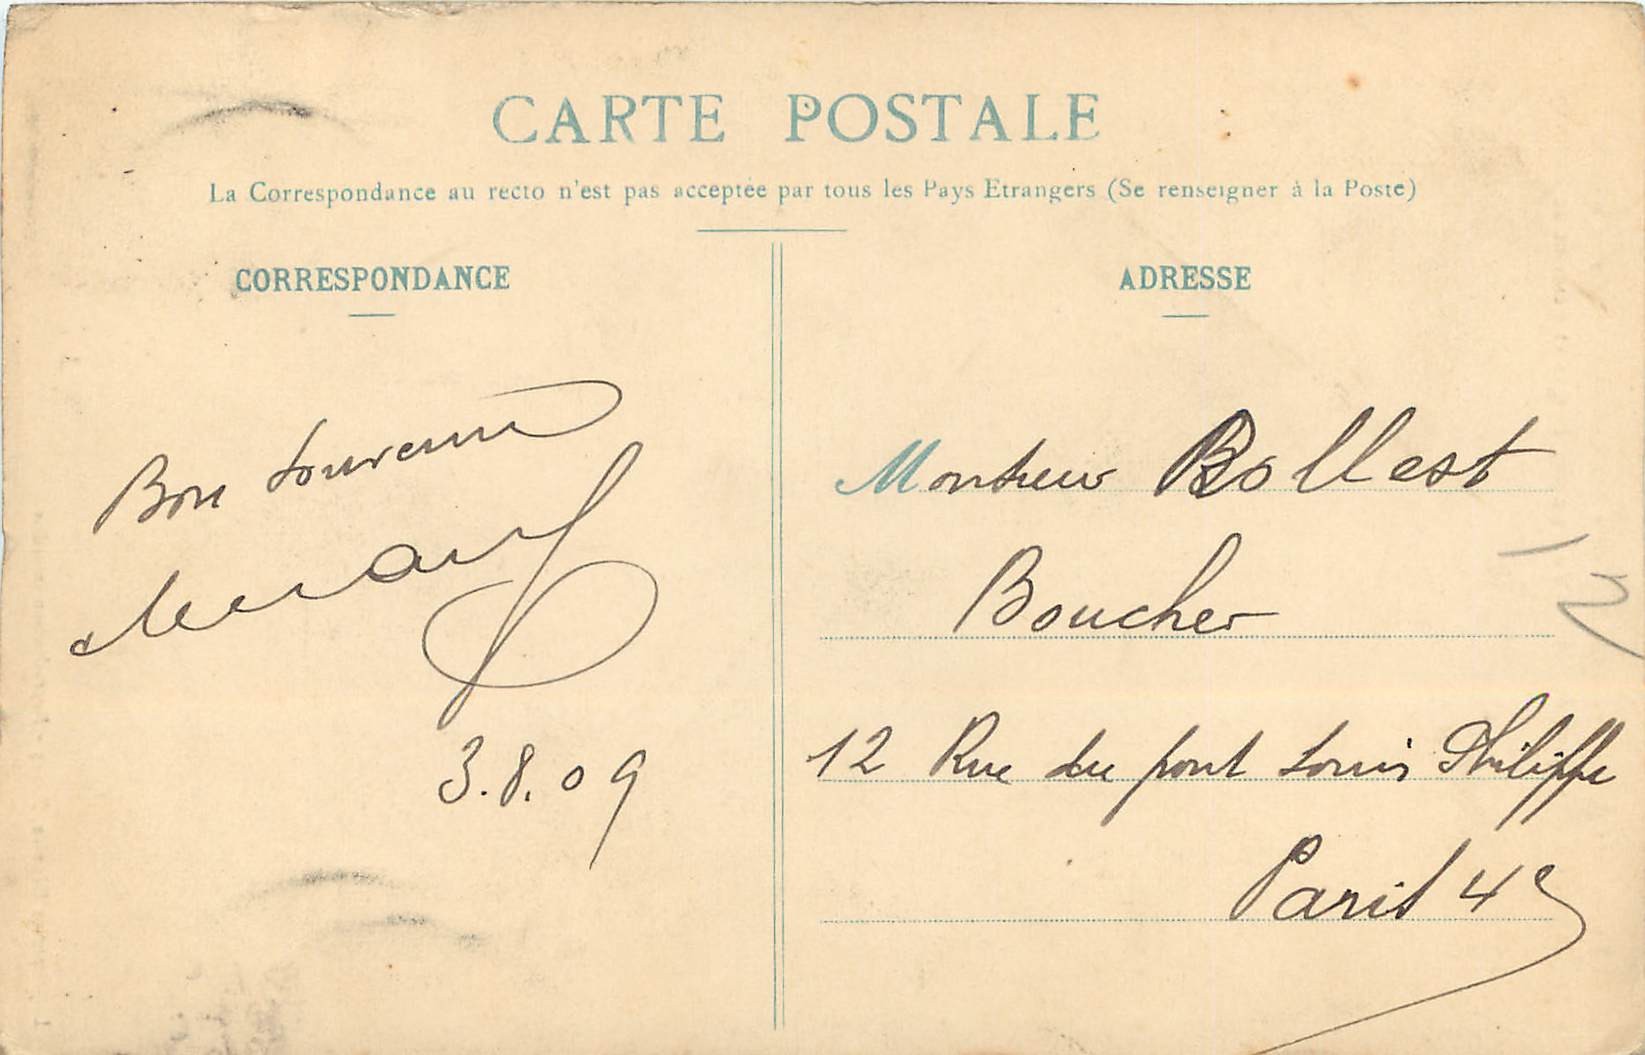 CARTE POSTALE
La Correspondance au recto n'est pas acceptée par tous les Pays Etrangers (Se renseigner à la Poste)
CORRESPONDANCE
Bon souvenir
3.8.09
ADRESSE
Monsieur Bollest
Boucher
12 Rue du pont Louis Philippe
Paris 4e